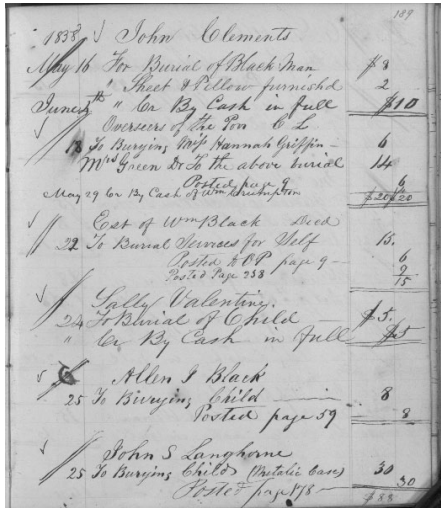 189
1858 John Clements
May 16 For Burial of Black Man $8
" Sheet & Pillow furnishd 2
June 4th " Cr By Cash in full $10
Overseers of the Poor C L
18 To Burying Miss Hannah Griffin — 6
Mrs Green Dr To the above burial 14
Posted page 9 6
May 29 Cr By Cash of Wm Crumpton $20 $20
Est of Wm Black Died
22 To Burial Services for Self 15.
Posted to OP page 9 — 6
Posted Page 238 9
15
Sally Valentine.
24 To Burial of Child — $5.
" Cr By Cash in full $5
Allen J Black
25 To Burying Child — 8
Posted page 59 8
John S Langhorne
25 To Burying Child (Metalic Case) 30
Posted page 178 — 30
$88